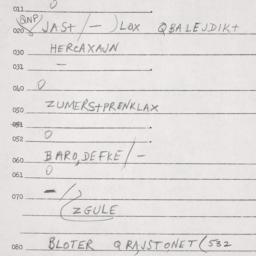 011 0
QNP
020 JAST/—)LOX QBALEJDIKT
030 HERCAXAJN
031 —
040 0
050 ZUMERSTPRENKLAX
051
052 0
060 BARO,DEFKE/—
061 0
070 —/)
ZGULE
080 BLOTER QRAJSTONET(532